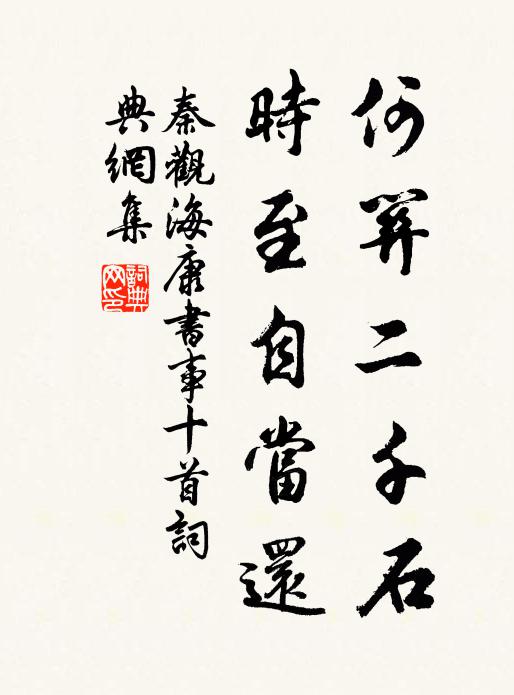 何關二千石
時至自當還
秦觀海康書事十首詞
典網集
詞典
网印